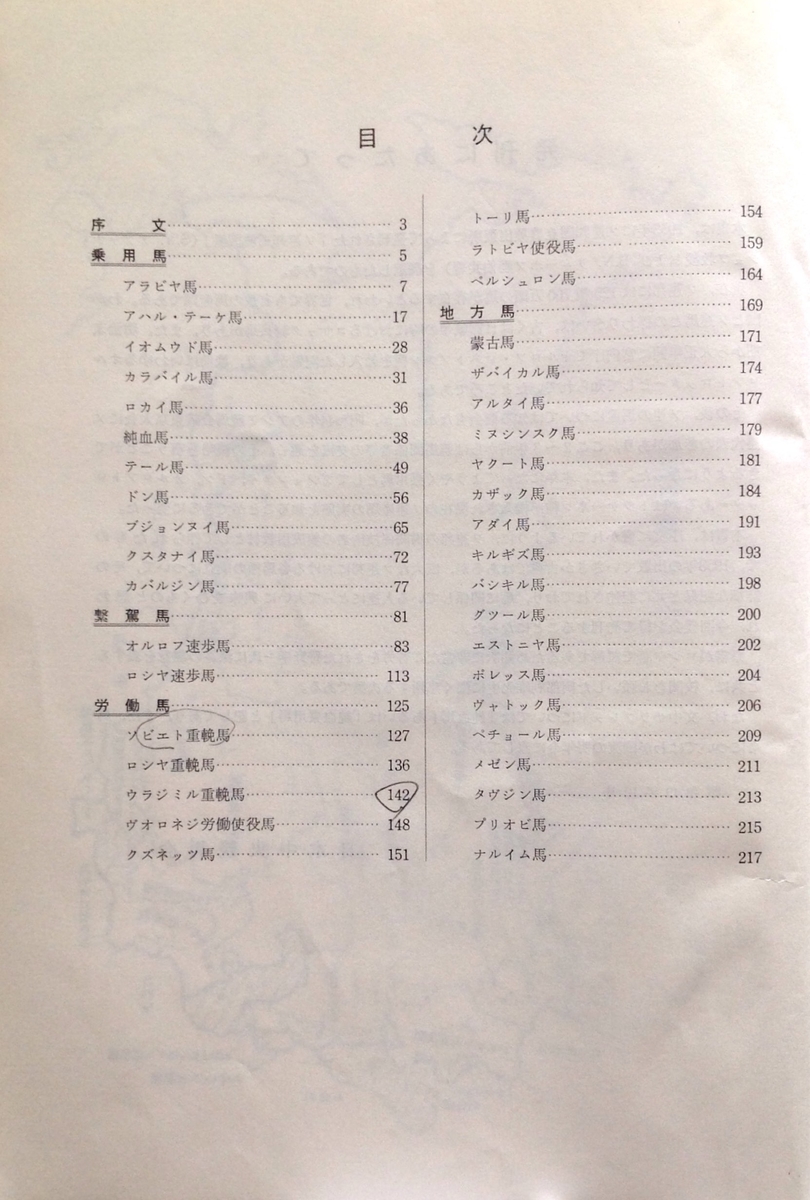 目　次
序　文 3
乗用馬 5
アラビヤ馬 7
アハル・テーケ馬 17
イオムウド馬 28
カラバイル馬 31
ロカイ馬 36
純血馬 38
テール馬 49
ドン馬 56
ブジョンヌイ馬 65
クスタナイ馬 72
カバルジン馬 77
繋駕馬 81
オルロフ速歩馬 83
ロシヤ速歩馬 113
労働馬 125
ソビエト重輓馬 127
ロシヤ重輓馬 136
ウラジミル重輓馬 142
ヴオロネジ労働使役馬 148
クズネッツ馬 151
トーリ馬 154
ラトビヤ使役馬 159
ペルシュロン馬 164
地方馬 169
蒙古馬 171
ザバイカル馬 174
アルタイ馬 177
ミヌシンスク馬 179
ヤクート馬 181
カザック馬 184
アダイ馬 191
キルギズ馬 193
バシキル馬 198
グツール馬 200
エストニヤ馬 202
ポレッス馬 204
ヴャトック馬 206
ペチョール馬 209
メゼン馬 211
タヴジン馬 213
プリオビ馬 215
ナルイム馬 217